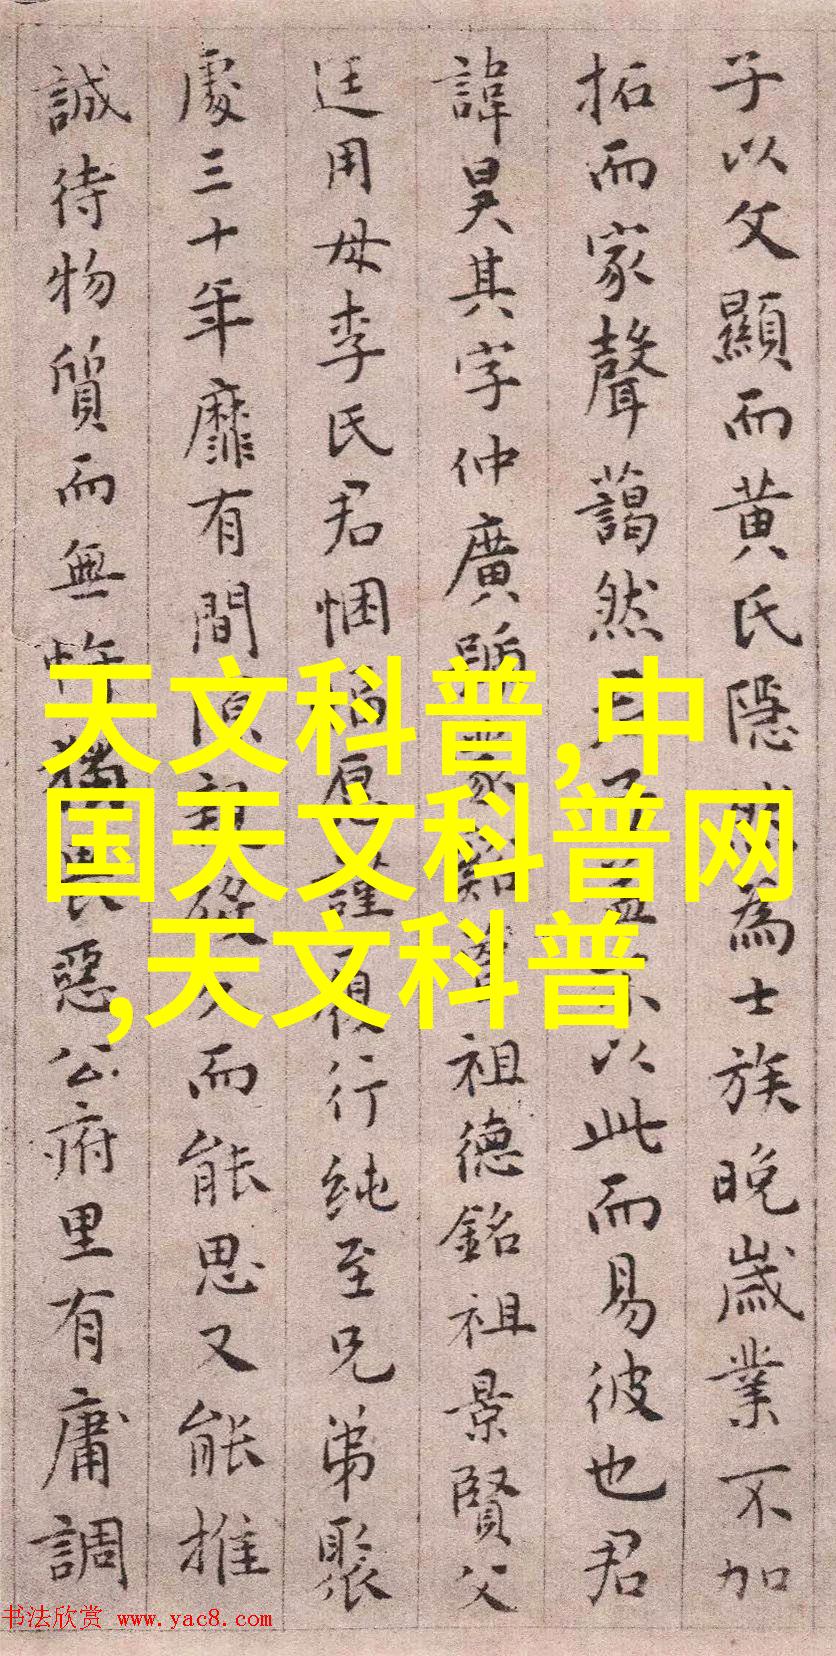 子以父顯而黄氏隠然為士族晚歳業不加
拓而家聲藹然君子盖不以此而易彼也君
諱昊其字仲廣號蒙谿曾祖德銘祖景賢父
廷用母李氏君悃愊愿謹履行纯至兄弟聚
處三十年靡有間隙親殁久而能思又能推
誠待物質而無忤猶畏惡公府里有庸調
天文科普,中
国天文科普网
,天文科普
书法欣赏 www.yac8.com